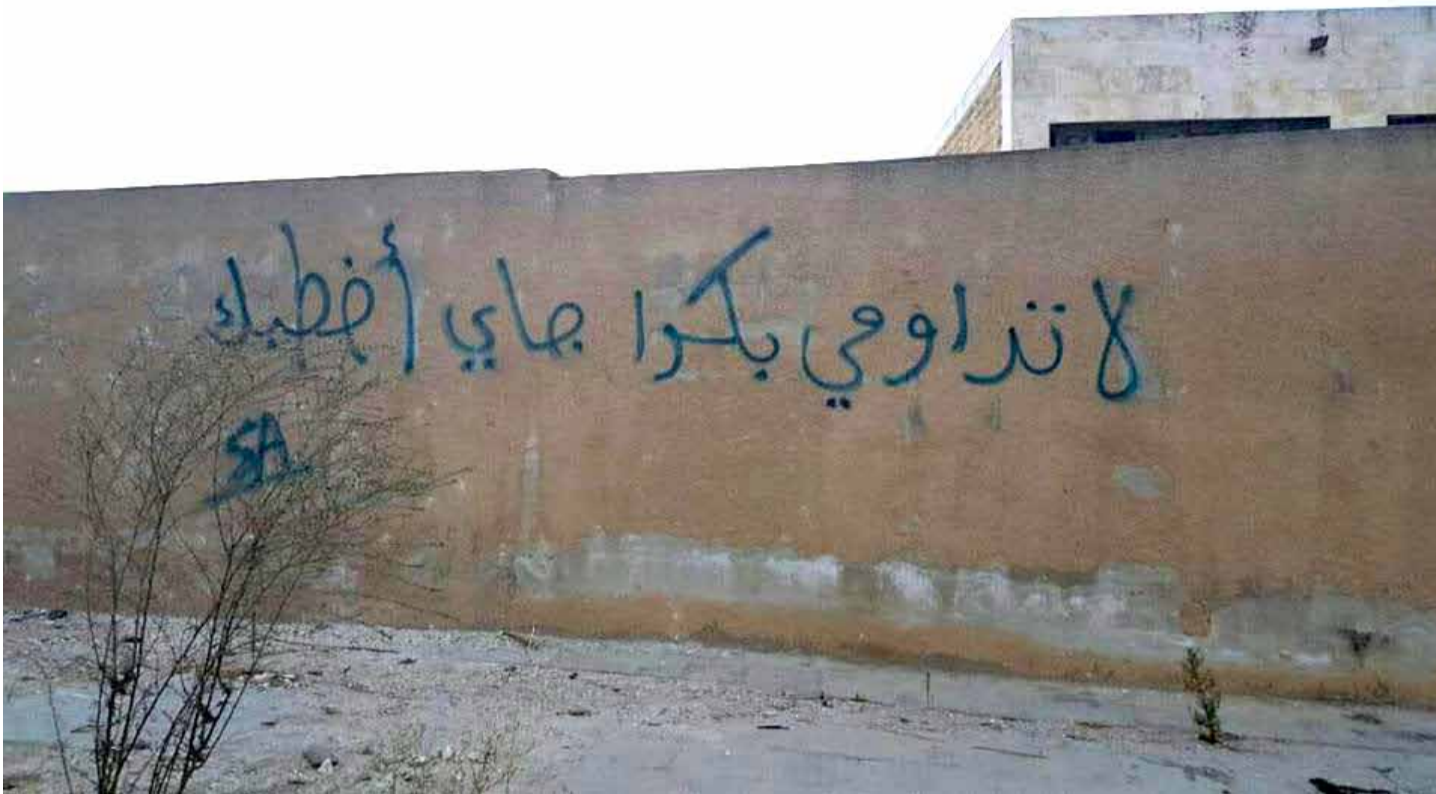 لا تداومي بكرا جاي أخطبك
SA